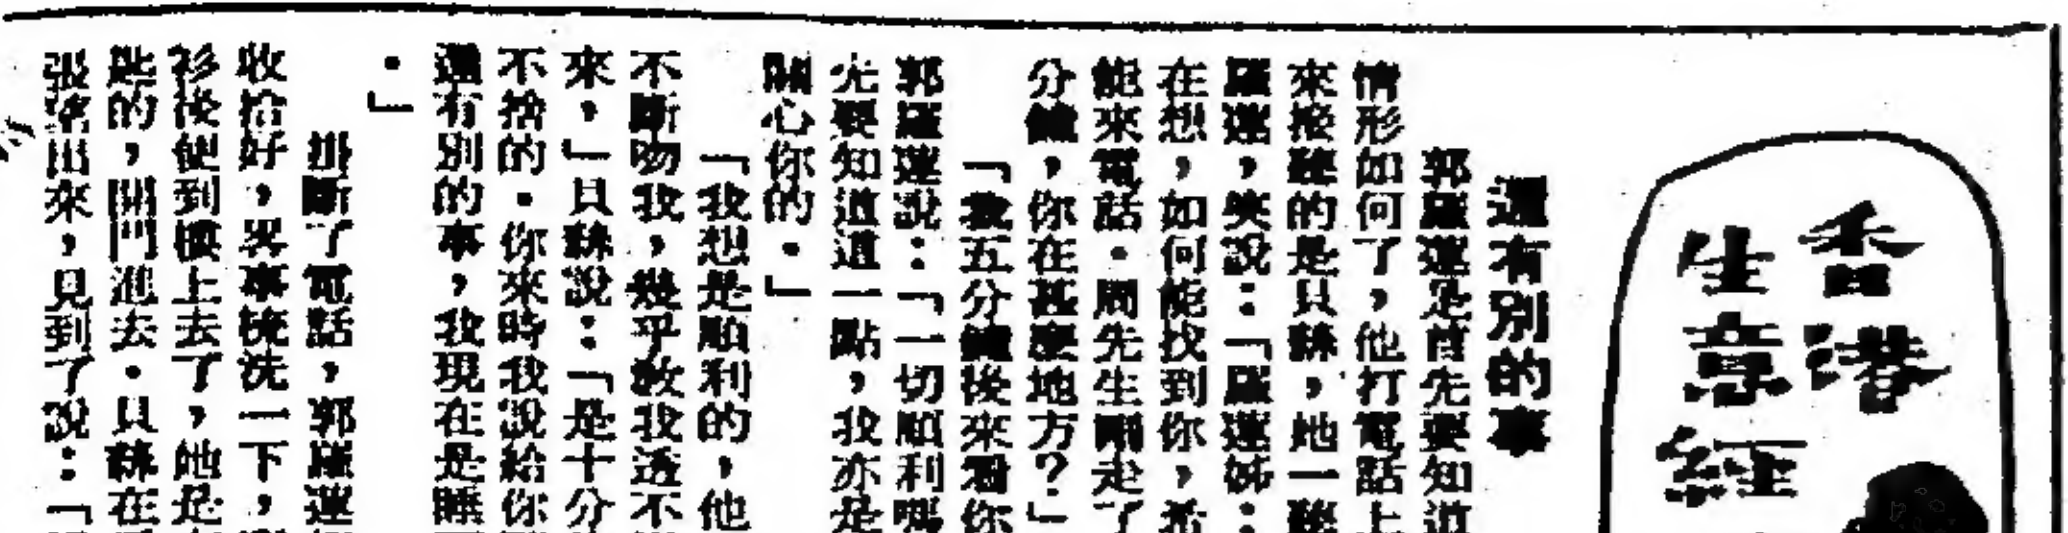 香港
生意經
還有別的事
郭羅蓮是首先要知道
情形如何了，他打電話上
來接聽的是貝絲，她一聽
羅蓮，笑說：「羅蓮姊：
在想，如何能找到你，希
能來電話。周先生剛走了
分鐘，你在甚麼地方？」
「我五分鐘後來看你
郭羅蓮說：「一切順利嗎
先要知道道一點，我亦是
關心你的。」
「我想是順利的，他
不斷吻我，幾乎教我透不
來，」貝絲說：「是十分
不捨的。你來時我說給你
還有別的事，我現在是睡
。」
掛斷了電話，郭羅蓮
收拾好，畧事梳洗一下，
衫後便到樓上去了，她是
匙的，開門進去。貝絲在
張望出來，見到了說：「